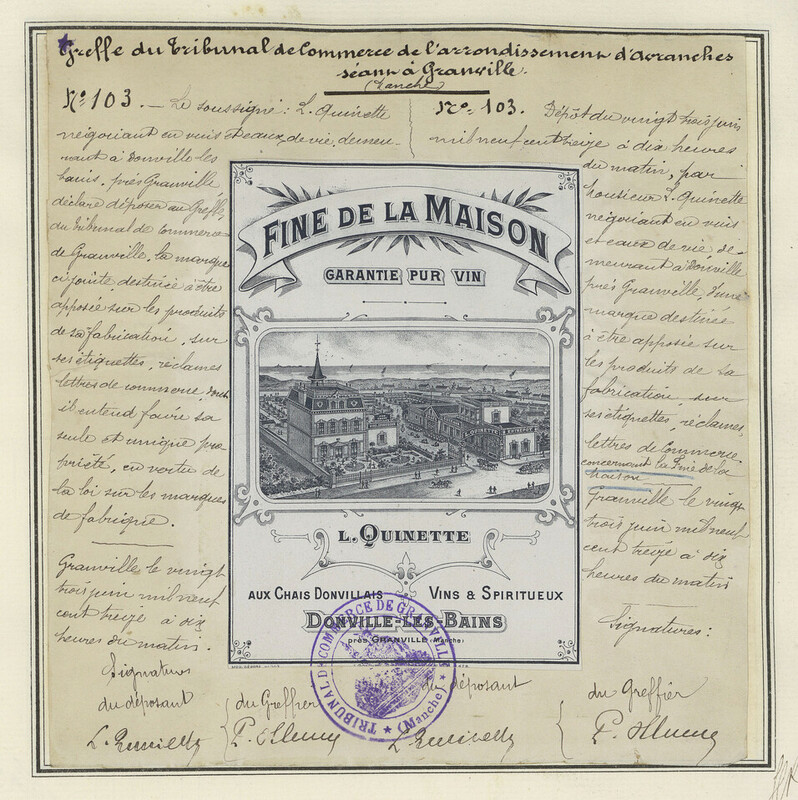 Greffe du Tribunal de Commerce de l'arrondissement d'Avranches
séant à Granville.
(Manche)
No. 103. — Le soussigné : L. Quinette
négociant en vins et eaux de vie, demeu-
rant à Donville les
bains, près Granville
déclare déposer au Greffe
du Tribunal de Commerce
de Granville, la marque
ci jointe destinée à être
apposée sur les produits
de sa fabrication, sur
ses étiquettes, réclames
lettres de commerce, dont
il entend faire sa
seule et unique pro
priété, en vertu de
la loi sur les marques
de fabrique.
Granville le vingt
trois juin mil neuf
cent treize à dix
heures du matin.
Signatures
du déposant
du Greffier
L. Quinette
No. 103. Dépôt du vingt trois juin
mil neuf cent treize à dix heures
du matin, par
Monsieur L. Quinette
négociant en vins
et eaux de vie de-
meurant à Donville
près Granville d'une
marque destinée
à être apposée sur
les produits de sa
fabrication, sur
ses étiquettes, réclames,
lettres de Commerce
concernant la Fine de la
Maison
Granville le vingt
trois juin mil neuf
cent treize à dix
heures du matin
Signatures :
du déposant
du Greffier
L. Quinette
FINE DE LA MAISON
GARANTIE PUR VIN
L. QUINETTE
AUX CHAIS DONVILLAIS VINS & SPIRITUEUX
DONVILLE-LES-BAINS
près GRANVILLE (Manche)
TRIBUNAL DE COMMERCE DE GRANVILLE
(Manche)